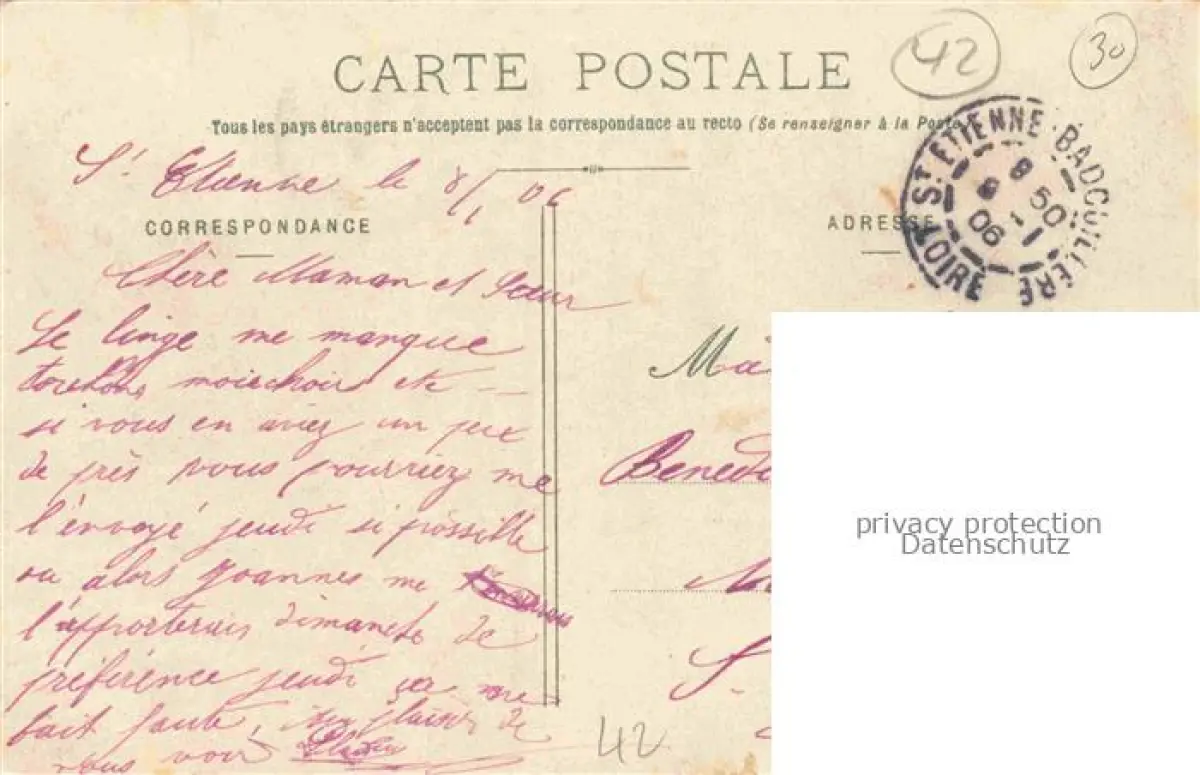 CARTE POSTALE
42
30
Tous les pays étrangers n'acceptent pas la correspondance au recto (Se renseigner à la Poste
St Etienne le 8/1 06
CORRESPONDANCE
ADRESSE
ST ETIENNE-BADOUILLERE
LOIRE
8 50
9 - 1
06
Chère Maman et Soeur
Le linge me manque
torchons moischoir etc —
si vous en aviez un peu
de près vous pourriez me
l'envoyé jeudi si possible
ou alors Joannes me
l'apporterais dimanche de
préférence jeudi ça me
fait faute, plaisir de
vous voir
Ma
Benedi
S
42
privacy protection
Datenschutz